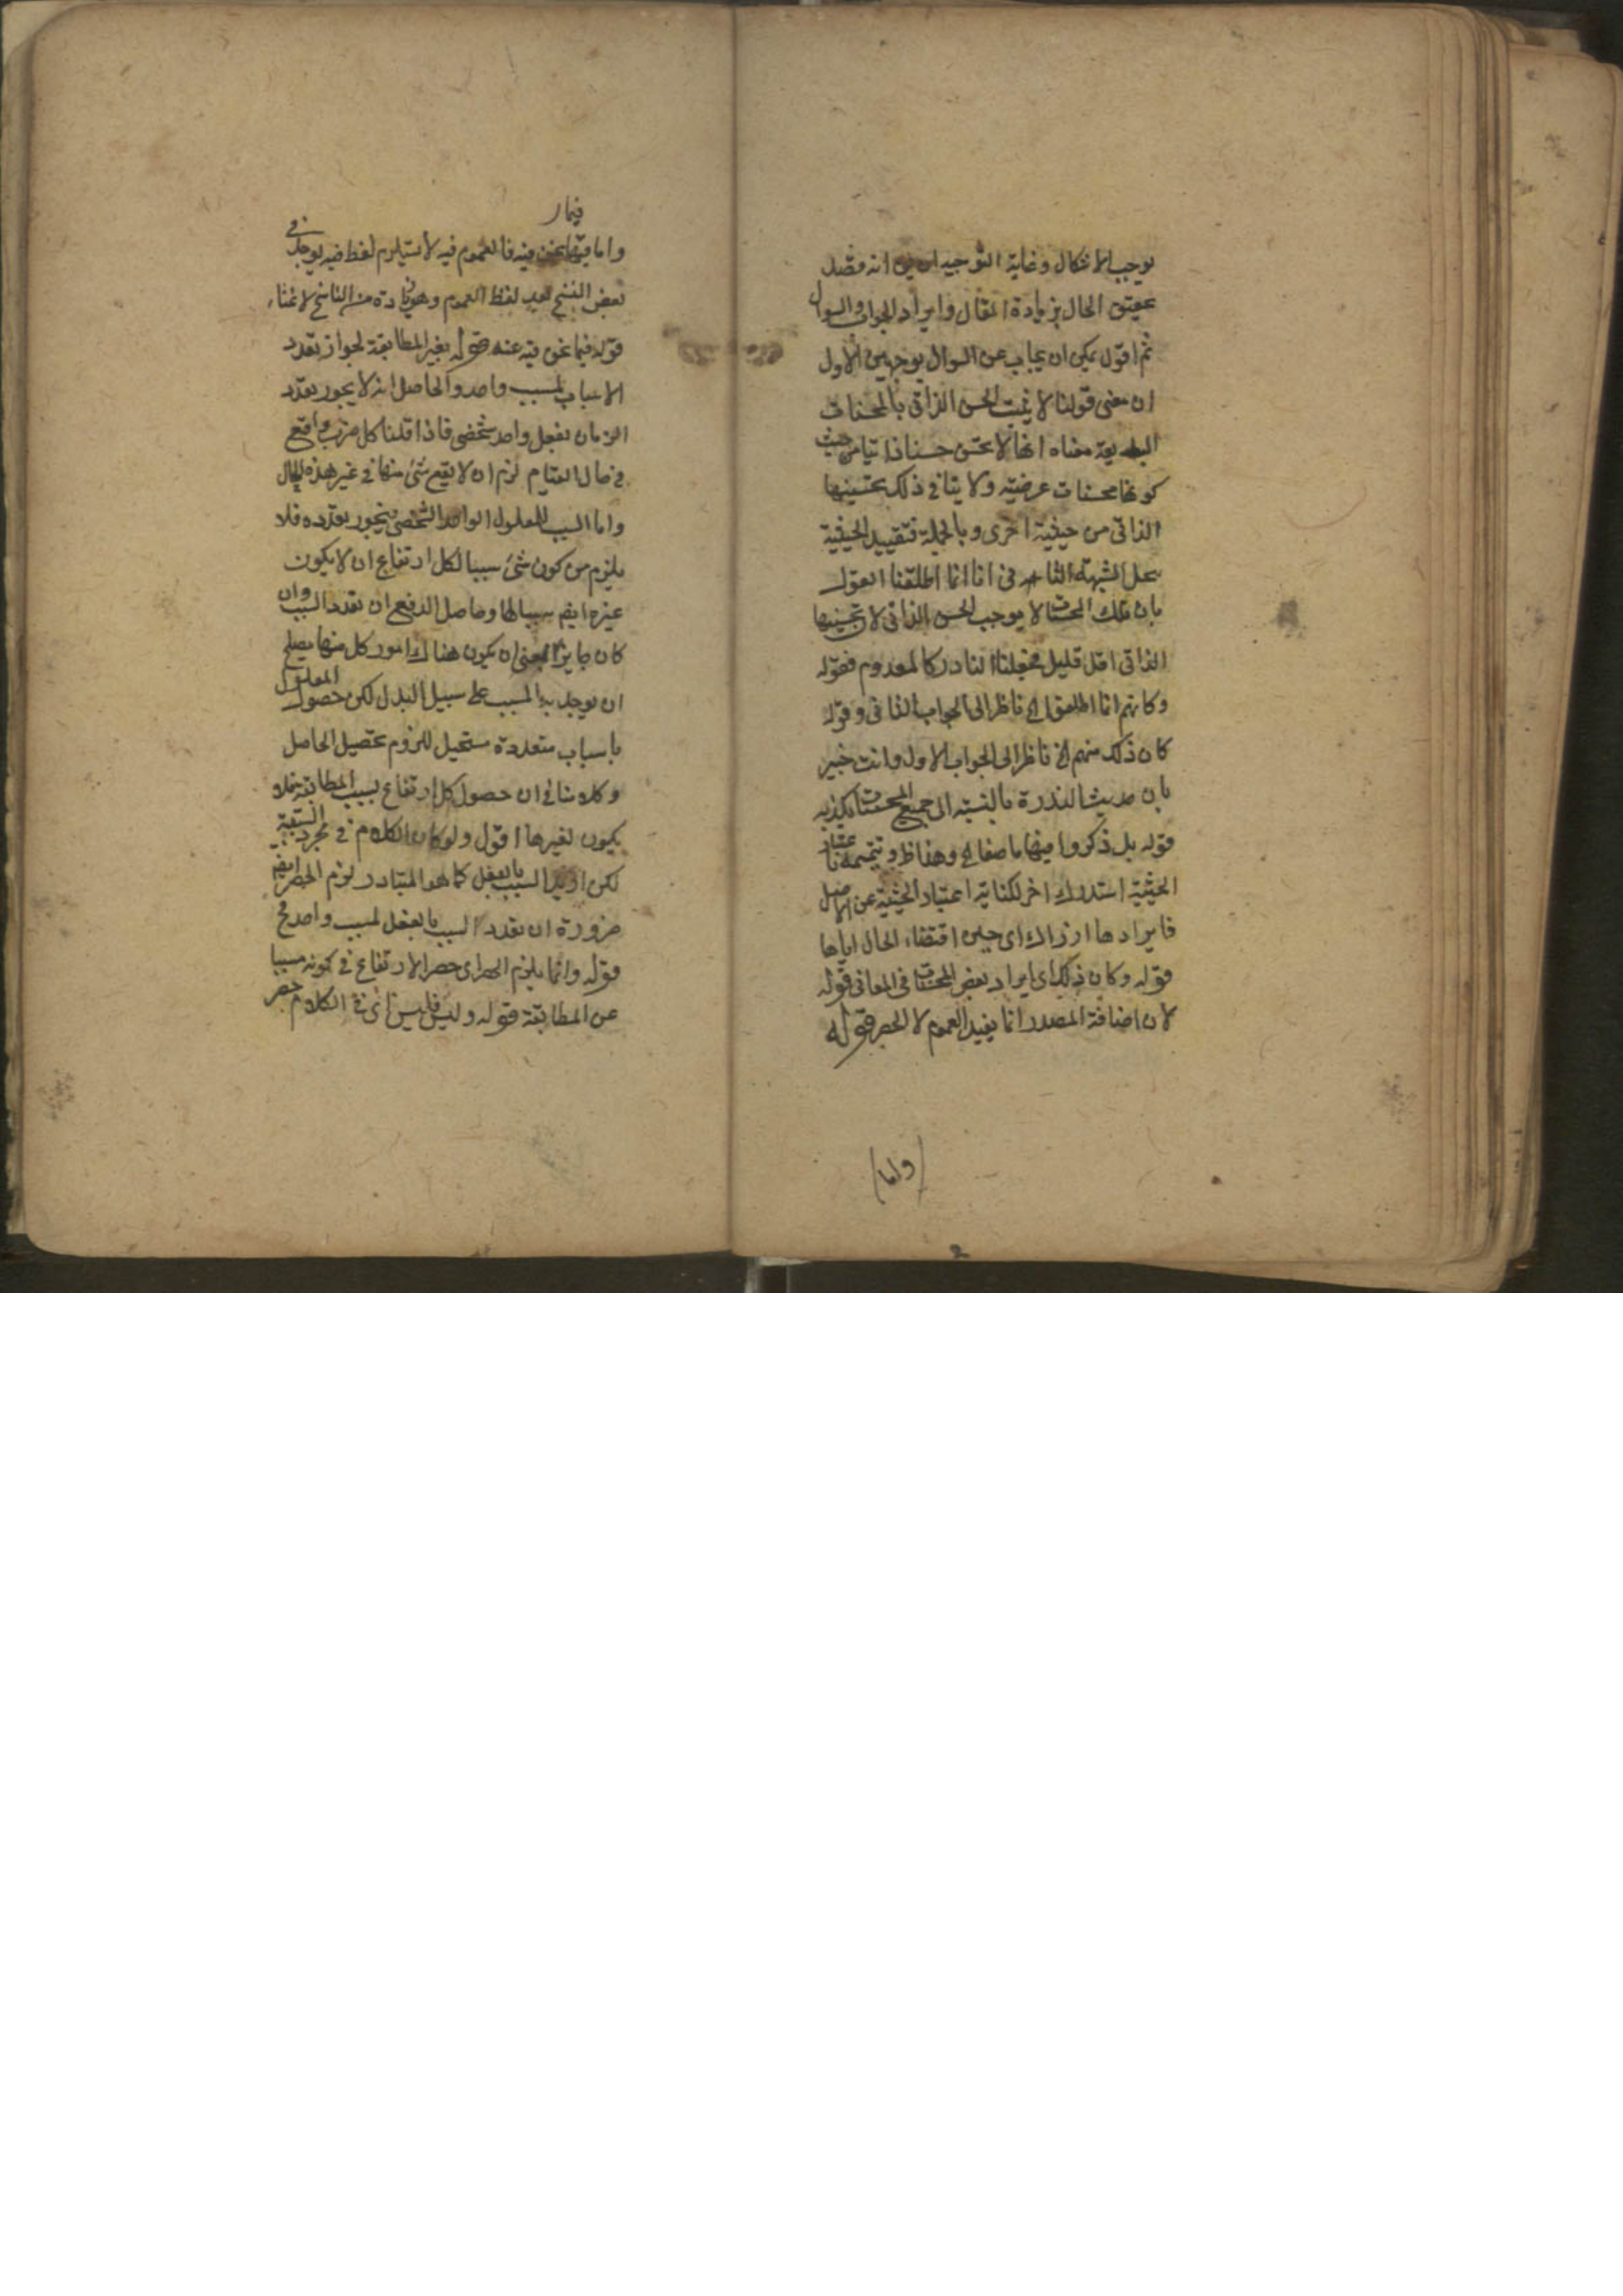 يوجب الاشكال وغاية التوجيه ان يق انه قصد
تحقيق الحال بزيادة المقال وايراد الجواب والسوال
ثم اقول يمكن ان يجاب عن السوال بوجهين الاول
ان معنى قولنا لا يثبت الحسن الذاتى بالمحسنات
البديعة معناه انها لا تحسن حسنا ذاتيا من حيث
كونها محسنات عرضية ولا ينافى ذلك تحسينها
الذاتى من حيثية اخرى وبالجملة فتقييد الحيثية
يحل الشبهة الثانى انا انما اطلقنا القول
بان تلك المحسنات لا يوجب الحسن الذاتى لان تحسينها
الذاتى اقل قليل فجعلنا النادر كالمعدوم فقوله
وكانهم انما اطلقوا الخ ناظر الى الجواب الثانى وقوله
كان ذلك منهم الخ ناظر الى الجواب الاول وانت خبير
بان حديث الندرة بالنسبة الى جميع المحسنات يكذبه
قوله بل ذكروا فيها ما صفا الخ وهذا ظ وتتميمه باعتبار
الحيثية استدراك اخر لكفاية اعتبار الحيثية عن الاصل
فايرادها اذ ذاك اى حين اقتضاء الحال اياها
قوله وكان ذلك اى ايراد بعض المحسنات فى المعانى قوله
لان اضافة المصدر انما يفيد العموم لا الحصر قوله
(واما)
فيما
واما فيما نحن فيه فالعموم فيه لا يستلزم لفظ فيه يوجد فى
بعض النسخ بعد لفظ العموم وهو زيادة من الناسخ لاغناء
قوله فيما نحن فيه عنه قوله بغير المطابقة لجواز تعدد
الاسباب لمسبب واحد والحاصل انه لا يجوز تعدد
الزمان لفعل واحد شخصى فاذا قلنا كل ضرب واقع
فى حال القيام لزم ان لا يقع شئ منها فى غير هذه الحال
واما السبب للمعلول الواحد الشخصى فيجوز تعدده فلا
يلزم من كون شئ سببا لكل ارتفاع ان لا يكون
غيره ايضا سببا لها وحاصل الدفع ان تعدد السبب وان
كان جايزا بمعنى ان يكون هناك امور كل منها يصلح
ان يوجد به المسبب على سبيل البدل لكن حصول المعلول
باسباب متعددة مستحيل للزوم تحصيل الحاصل
وكلامنا فى ان حصول كل ارتفاع بسبب المطابقة فلا
يكون لغيرها اقول ولو كان الكلام فى مجرد السببية
لكن اريد السبب بالفعل كما هو المتبادر لزم الحصر ايضا
ضرورة ان تعدد السبب بالفعل لمسبب واحد مح
قوله وانما يلزم الحصر اى حصر الارتفاع فى كونه مسببا
عن المطابقة قوله وليس فليس اى فى الكلام حصر